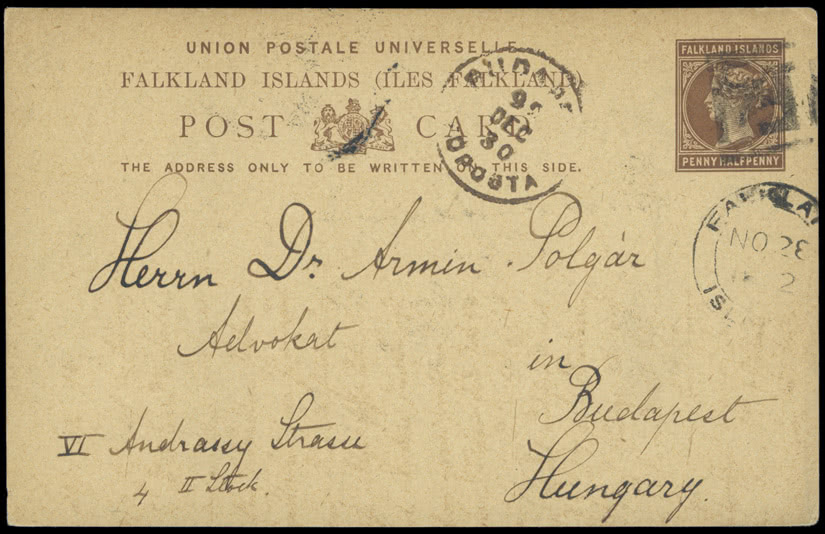 UNION POSTALE UNIVERSELLE
FALKLAND ISLANDS (ILES FALKLAND)
POST CARD
THE ADDRESS ONLY TO BE WRITTEN ON THIS SIDE.
FALKLAND ISLANDS
PENNY HALFPENNY
DEC
30
POSTA
NO 28
2
Herrn Dr. Armin Polgár
Advokat
in
Budapest
VI Andrassy Strasse
4 II Stock.
Hungary.